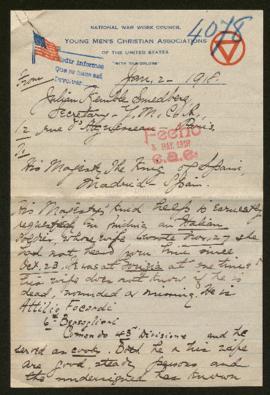 NATIONAL WAR WORK COUNCIL
YOUNG MEN'S CHRISTIAN ASSOCIATIONS
OF THE UNITED STATES
"WITH THE COLORS"
4078
Pedir informes
Que se busca
Devolver
From Jan. 2 - 1918.
Julian Smedberg,
Secretary - Y.M.C.A.,
12 rue d'Aguesseau Paris
Fecho
1918
S.A.E.
To
His Majesty, The King of Spain,
Madrid - Spain.
His Majesty's kind help is earnestly
requested in finding an Italian
soldier whose wife wrote Nov. 27 she
had not heard from him since
Oct. 23. He was at one time.
His wife does not know if he is
dead, wounded or missing. He is
Attilio
6º Bersaglieri
Comando 43ª Divisione and he
served as cook. Both he & his wife
are good steady persons and
the undersigned has known